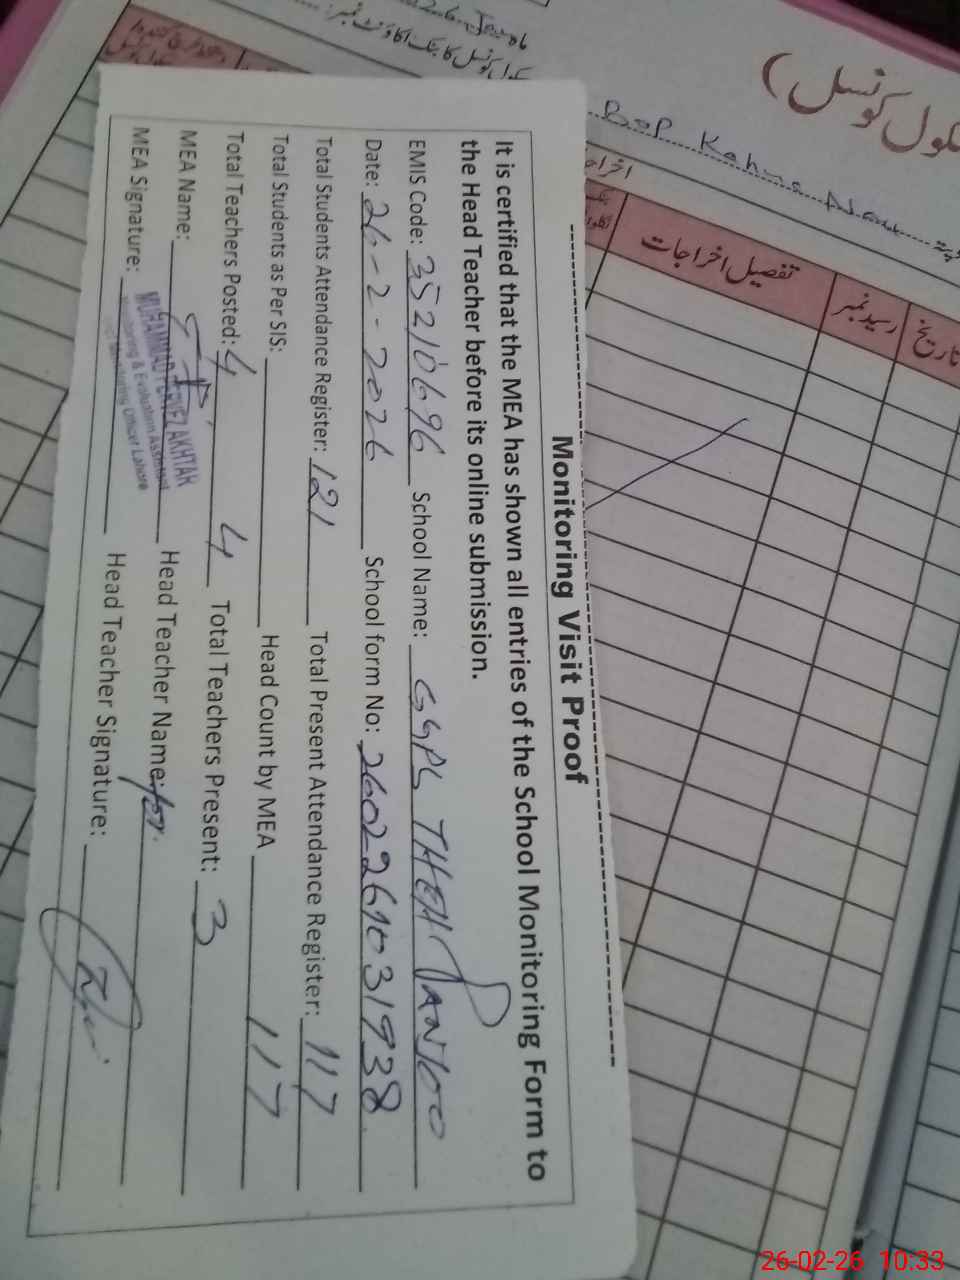 Monitoring Visit Proof
It is certified that the MEA has shown all entries of the School Monitoring Form to
the Head Teacher before its online submission.
EMIS Code: 35210696 School Name: GGPS THEH PANJOO
Date: 26-2-2026 School form No: 260226903 1938
Total Students Attendance Register: 121 Total Present Attendance Register: 117
Total Students as Per SIS: Head Count by MEA 117
Total Teachers Posted: 4 4 Total Teachers Present: 3
MEA Name: Head Teacher Name:
MEA Signature: Head Teacher Signature:
MUHAMMAD PERVEZ AKHTAR
Monitoring & Evaluation Assistant
Monitoring Officer Lahore
سکول کونسل)
BOP Kahna Nau
سکول کونسل کا بنک اکاؤنٹ نمبر:
تاریخ
رسید نمبر
تفصیل اخراجات
26-02-26 10:33